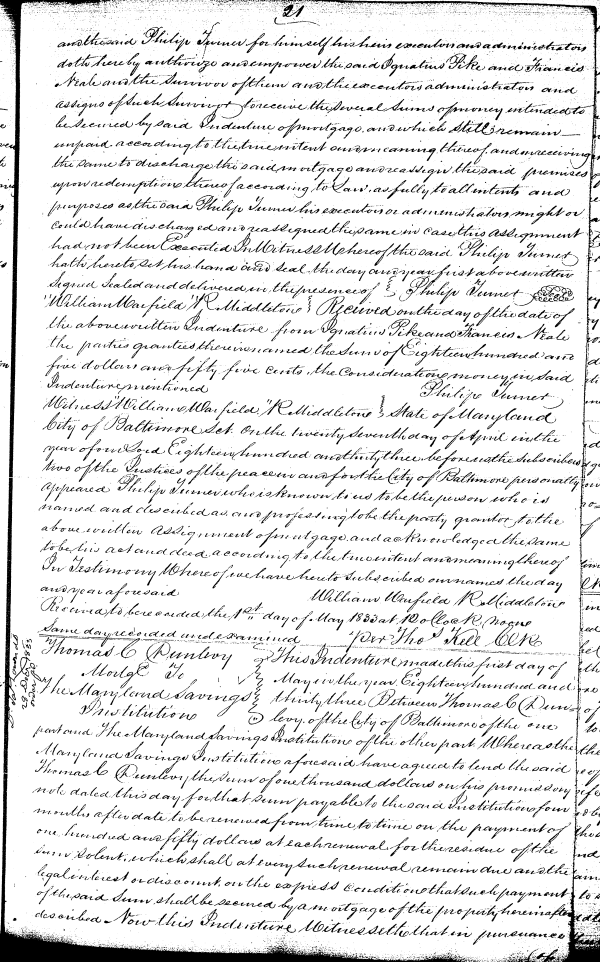 21
and the said Philip Turner for himself his heirs executors and administrators
doth hereby authorize and empower the said Ignatius Pike and Francis
Neale and the Survivor of them and the executors administrators and
assigns of such Survivor to receive the several Sums of money intended to
be secured by said Indenture of mortgage and which still remain
unpaid according to the true intent and meaning thereof and on receiving
the same to discharge the said mortgage and reassign the said premises
upon redemption thereof according to Law, as fully to all intents and
purposes as the said Philip Turner his executors or administrators might or
could have discharged and reassigned the same in case this Assignment
had not been Executed In Witness Whereof the said Philip Turner
hath hereto set his hand and seal the day and year first above written
Signed Sealed and delivered in the presence of } Philip Turner
William Warfield "R. Middletone } Received on the day of the date of
the above written Indenture from Ignatius Pike and Francis Neale
the parties grantees therein named the Sum of Eighteen hundred and
five dollars and fifty five cents, the Consideration money in said
Indenture mentioned Philip Turner
Witness "William Warfield "R. Middletone } State of Maryland
City of Baltimore Sct. On the twenty seventh day of April in the
year of our Lord Eighteen hundred and thirty three before us the subscribers
two of the Justices of the peace in and for the City of Baltimore personally
appeared Philip Turner who is known to us to be the person who is
named and described as and professing to be the party grantor to the
above written Assignment of mortgage and acknowledged the same
to be his act and deed according to the true intent and meaning thereof
In Testimony Whereof we have hereto Subscribed our names the day
and year aforesaid William Warfield R. Middletone
Received to be recorded the 1st day of May 1833 at 12 oClock, Noone
Same day recorded and examined per Thos Kell Clk
Thomas C Dunlevy } This Indenture made this first day of
Mortge To } May in the year Eighteen hundred and
The Maryland Savings } thirty three Between Thomas C Dun-
Institution } levy of the City of Baltimore of the one
part and The Maryland Savings Institution of the other part Whereas the
Maryland Savings Institution aforesaid have agreed to lend the said
Thomas C Dunlevy the sum of one thousand dollars on his promissory
note dated this day for that sum payable to the said Institution four
months after date to be renewed from time to time on the payment of
one hundred and fifty dollars at each renewal for the residue of the
sum so lent, which shall at every such renewal remain due and the
legal interest or discount, on the express condition that such payment
of the said Sum shall be secured by a mortgage of the property herein after
described Now this Indenture Witnesseth that in pursuance